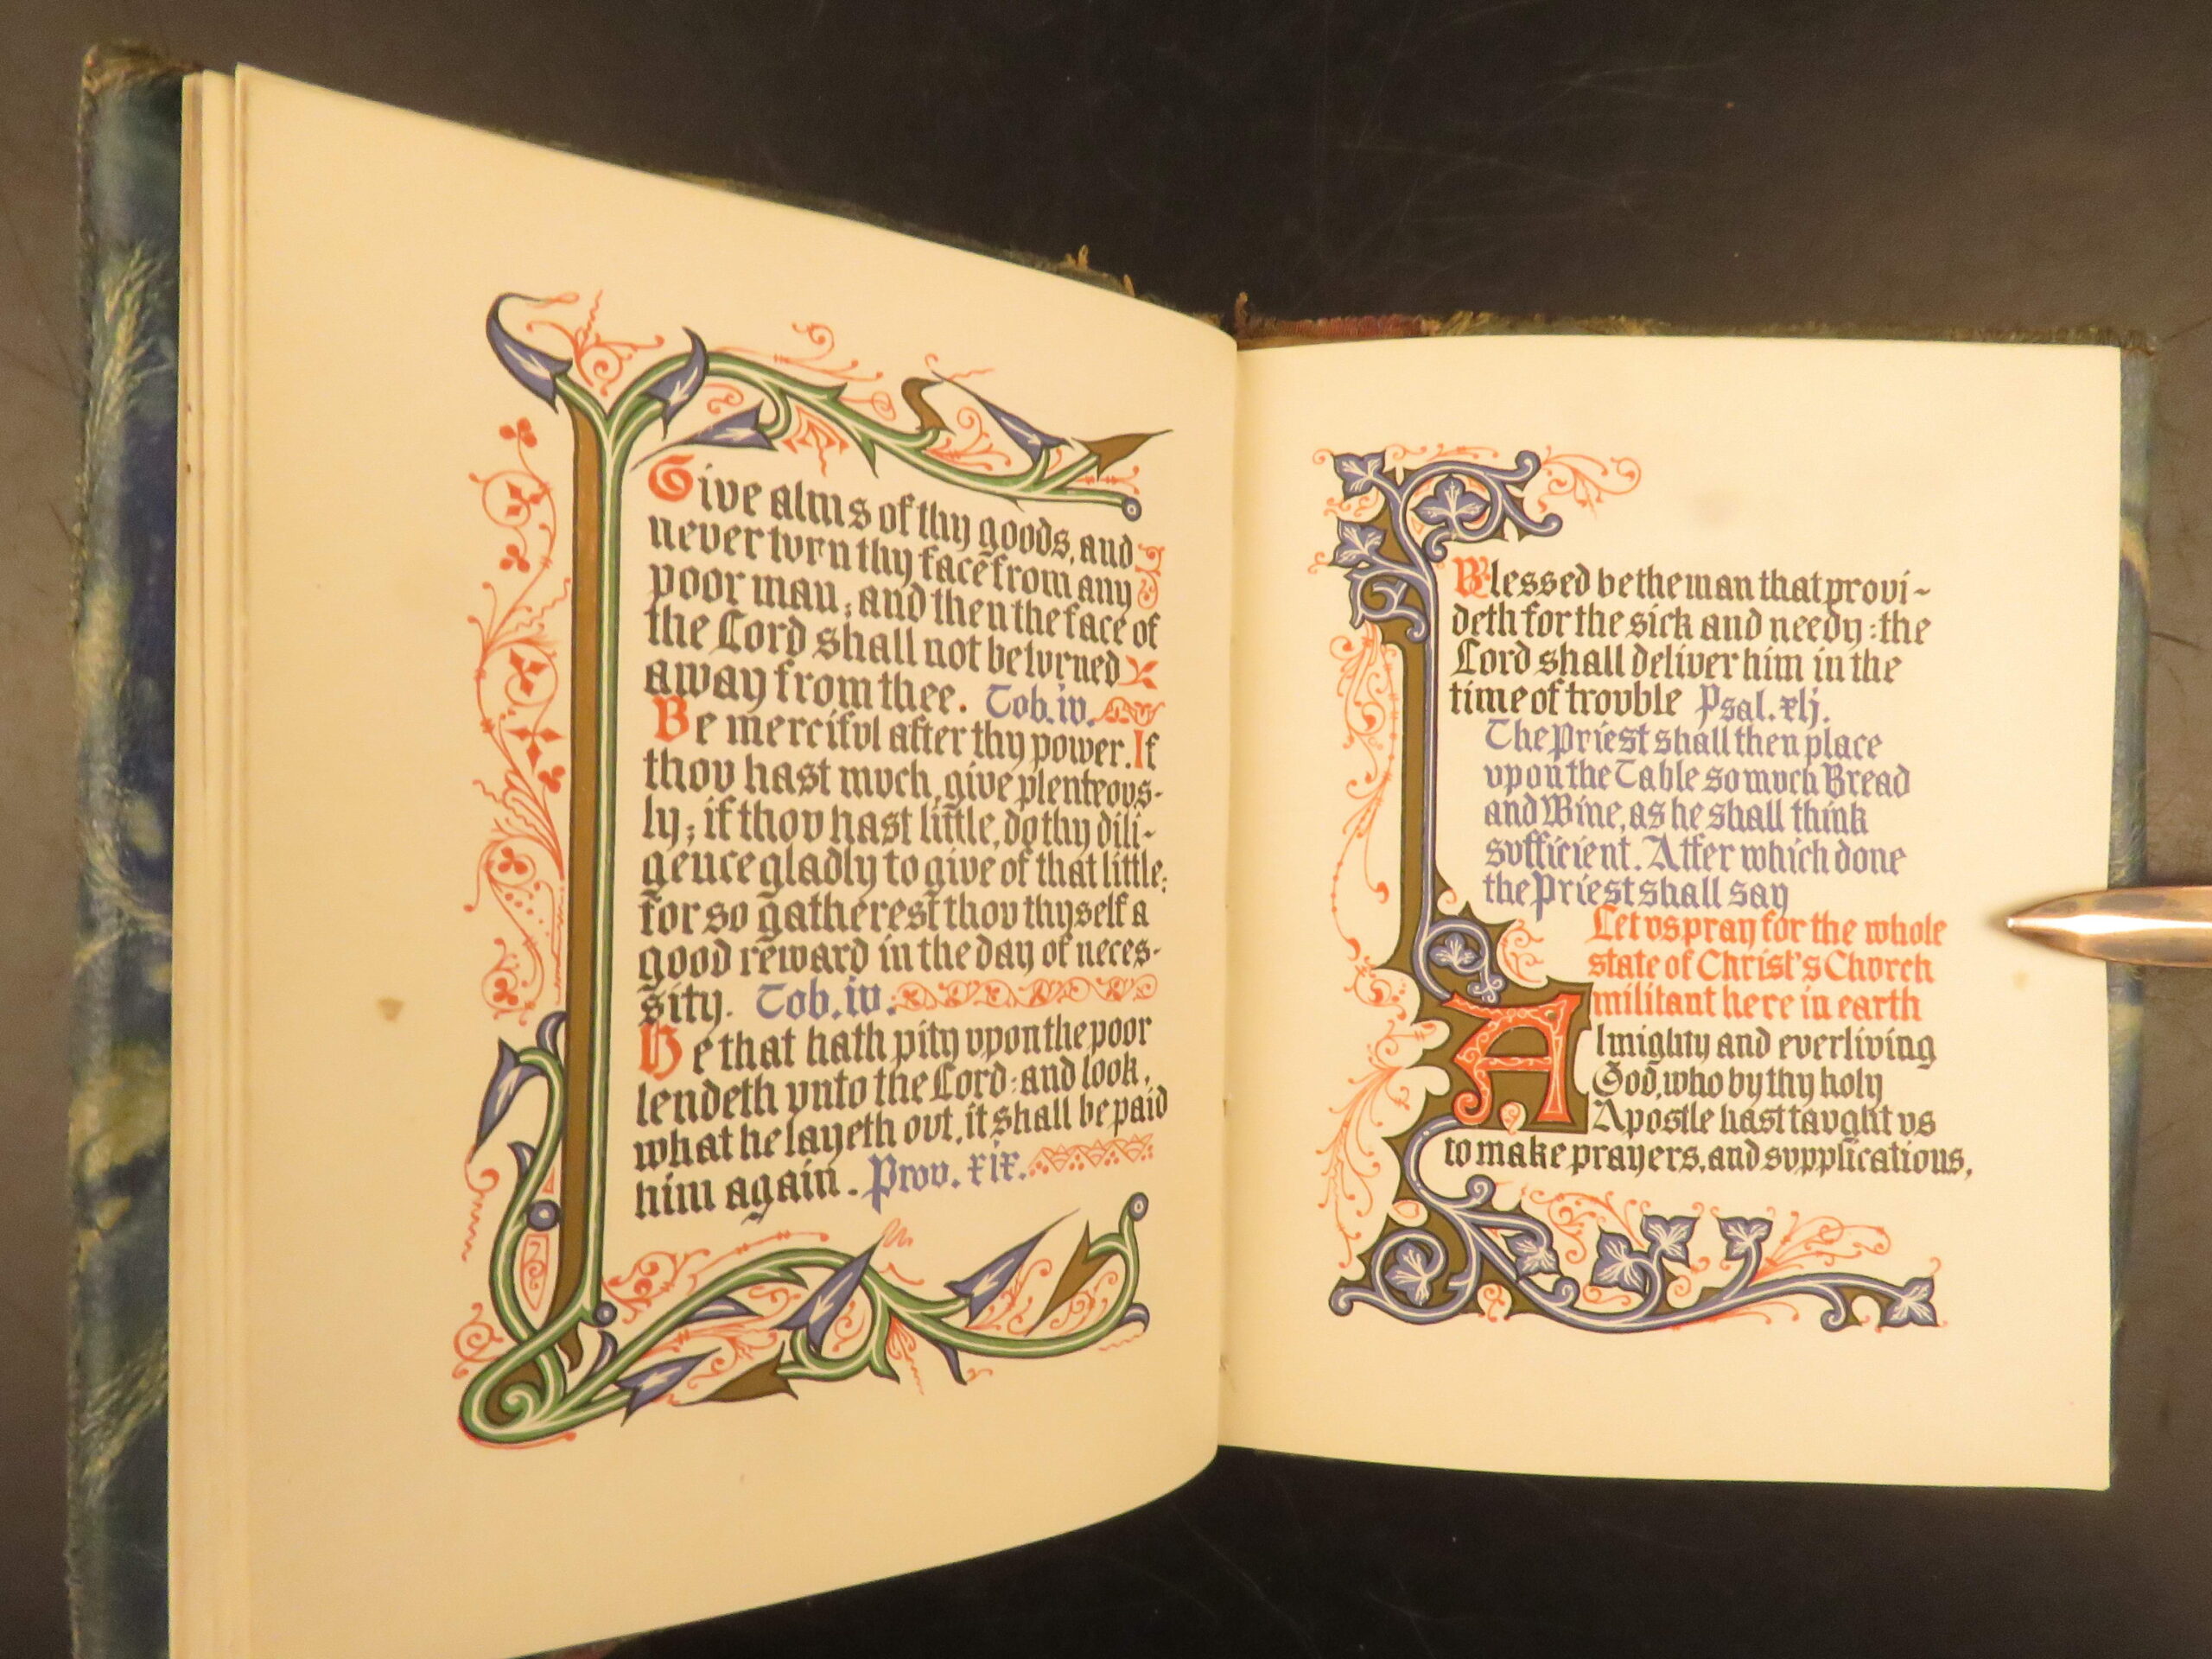 Give alms of thy goods, and
never turn thy face from any
poor man; and then the face of
the Lord shall not be turned
away from thee. Tob. iv.
Be merciful after thy power. If
thou hast much, give plenteous-
ly; if thou hast little, do thy dili-
gence gladly to give of that little:
for so gatherest thou thyself a
good reward in the day of neces-
sity. Tob. iv.
He that hath pity upon the poor
lendeth unto the Lord: and look,
what he layeth out, it shall be paid
him again. Prov. xix.
Blessed be the man that provi-
deth for the sick and needy: the
Lord shall deliver him in the
time of trouble Psal. xlj.
The Priest shall then place
upon the Table so much Bread
and Wine, as he shall think
sufficient. After which done
the Priest shall say
Let us pray for the whole
state of Christ's Church
militant here in earth
Almighty and everliving
God, who by thy holy
Apostle hast taught us
to make prayers, and supplications,